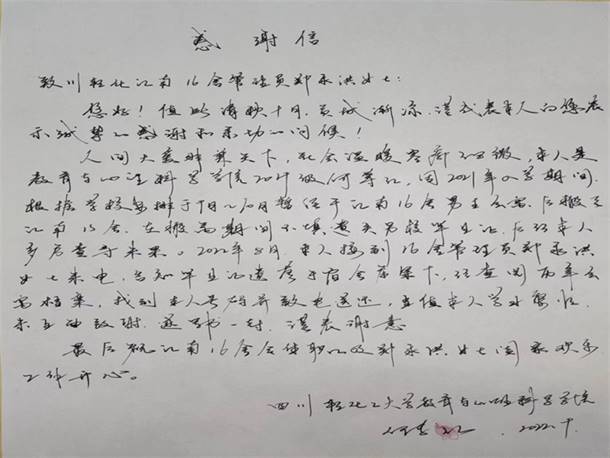 感谢信
致川轻化江南16舍管理员郑永洪女士：
您好！值此清秋十月，天气渐凉，谨代表本人向您表
示诚挚的感谢和亲切的问候！
人间大爱 天下，社会温暖，本人是
教育与心理科学学院2021级何，因2021年入学期间
根据学校安排于9月至10月暂住于江南16舍男生，后搬
江南16舍。在搬期间不慎丢失学生证，后经本人
多方查寻未果。2022年8月，本人接到16舍管理员郑永洪
女士来电，告知学生证遗落于宿舍床架下，经查阅两年
档案，找到本人号码并致电送还，本人学业，
未当面致谢，遂写书一封，谨表谢意
最后祝江南16舍全体职工及郑永洪女士阖家欢乐
工作开心。
四川轻化工大学教育与心理科学学院
何 2022.9.